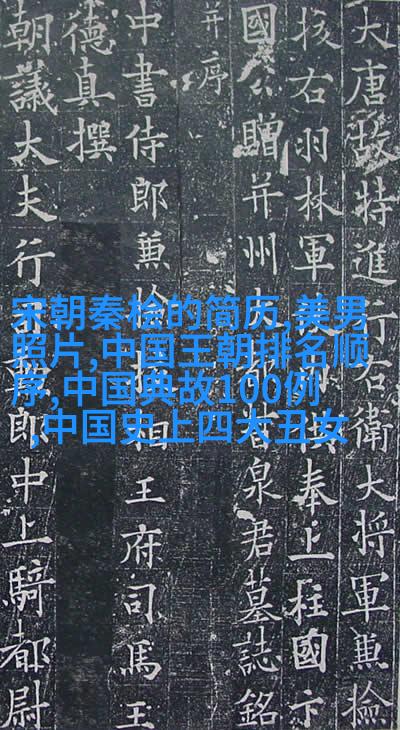 大唐故特進行右衛大將軍兼撿
挍右羽林軍供奉上柱國卞
國公贈并州大都督泉君墓誌銘
并序
中書侍郎兼撿相王府司馬王
德真撰
朝議大夫行郎中上騎都尉
宋朝秦桧的简历,美男
照片,中国王朝排名顺
序,中国典故100例
,中国史上四大丑女